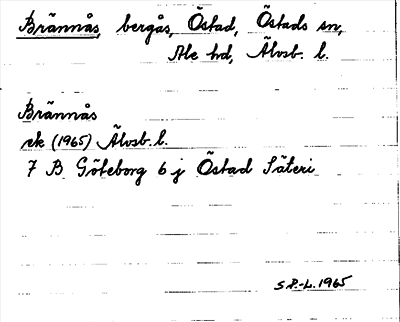 Brännås, bergås, Östad, Östads sn,
Ale hd, Älvsb. l.
Brännås
ek (1965) Älvsb. l.
7 B Göteborg 6 j Östad Säteri
S P.-L. 1965